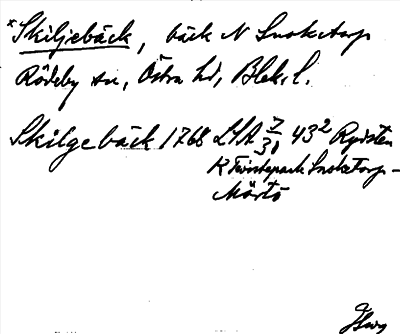 *Skiljebäck, bäck N Snoketorp
Rödeby sn, Östra hd, Blek. l.
Skilgebäck 1768 LSA 7/31 43² Rydsten
K Tvistepark Snoketorp-
Mörtö